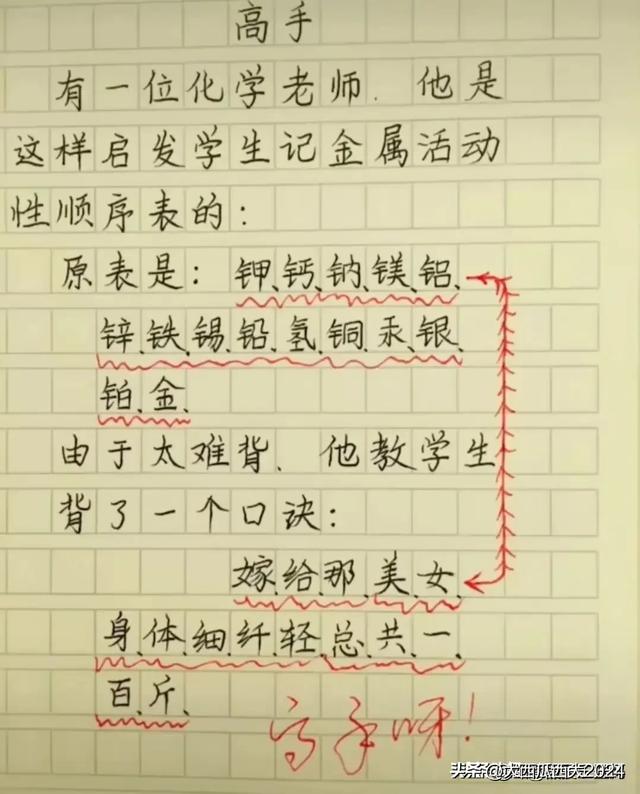 高手
有一位化学老师.他是
这样启发学生记金属活动
性顺序表的:
原表是:钾、钙、钠、镁、铝、
锌、铁、锡、铅、氢、铜、汞、银、
铂、金、
由于太难背、他教学生
背了一个口诀:
嫁、给、那、美、女、
身、体、细、纤、轻、总、共、一、
百、斤、
高手呀!